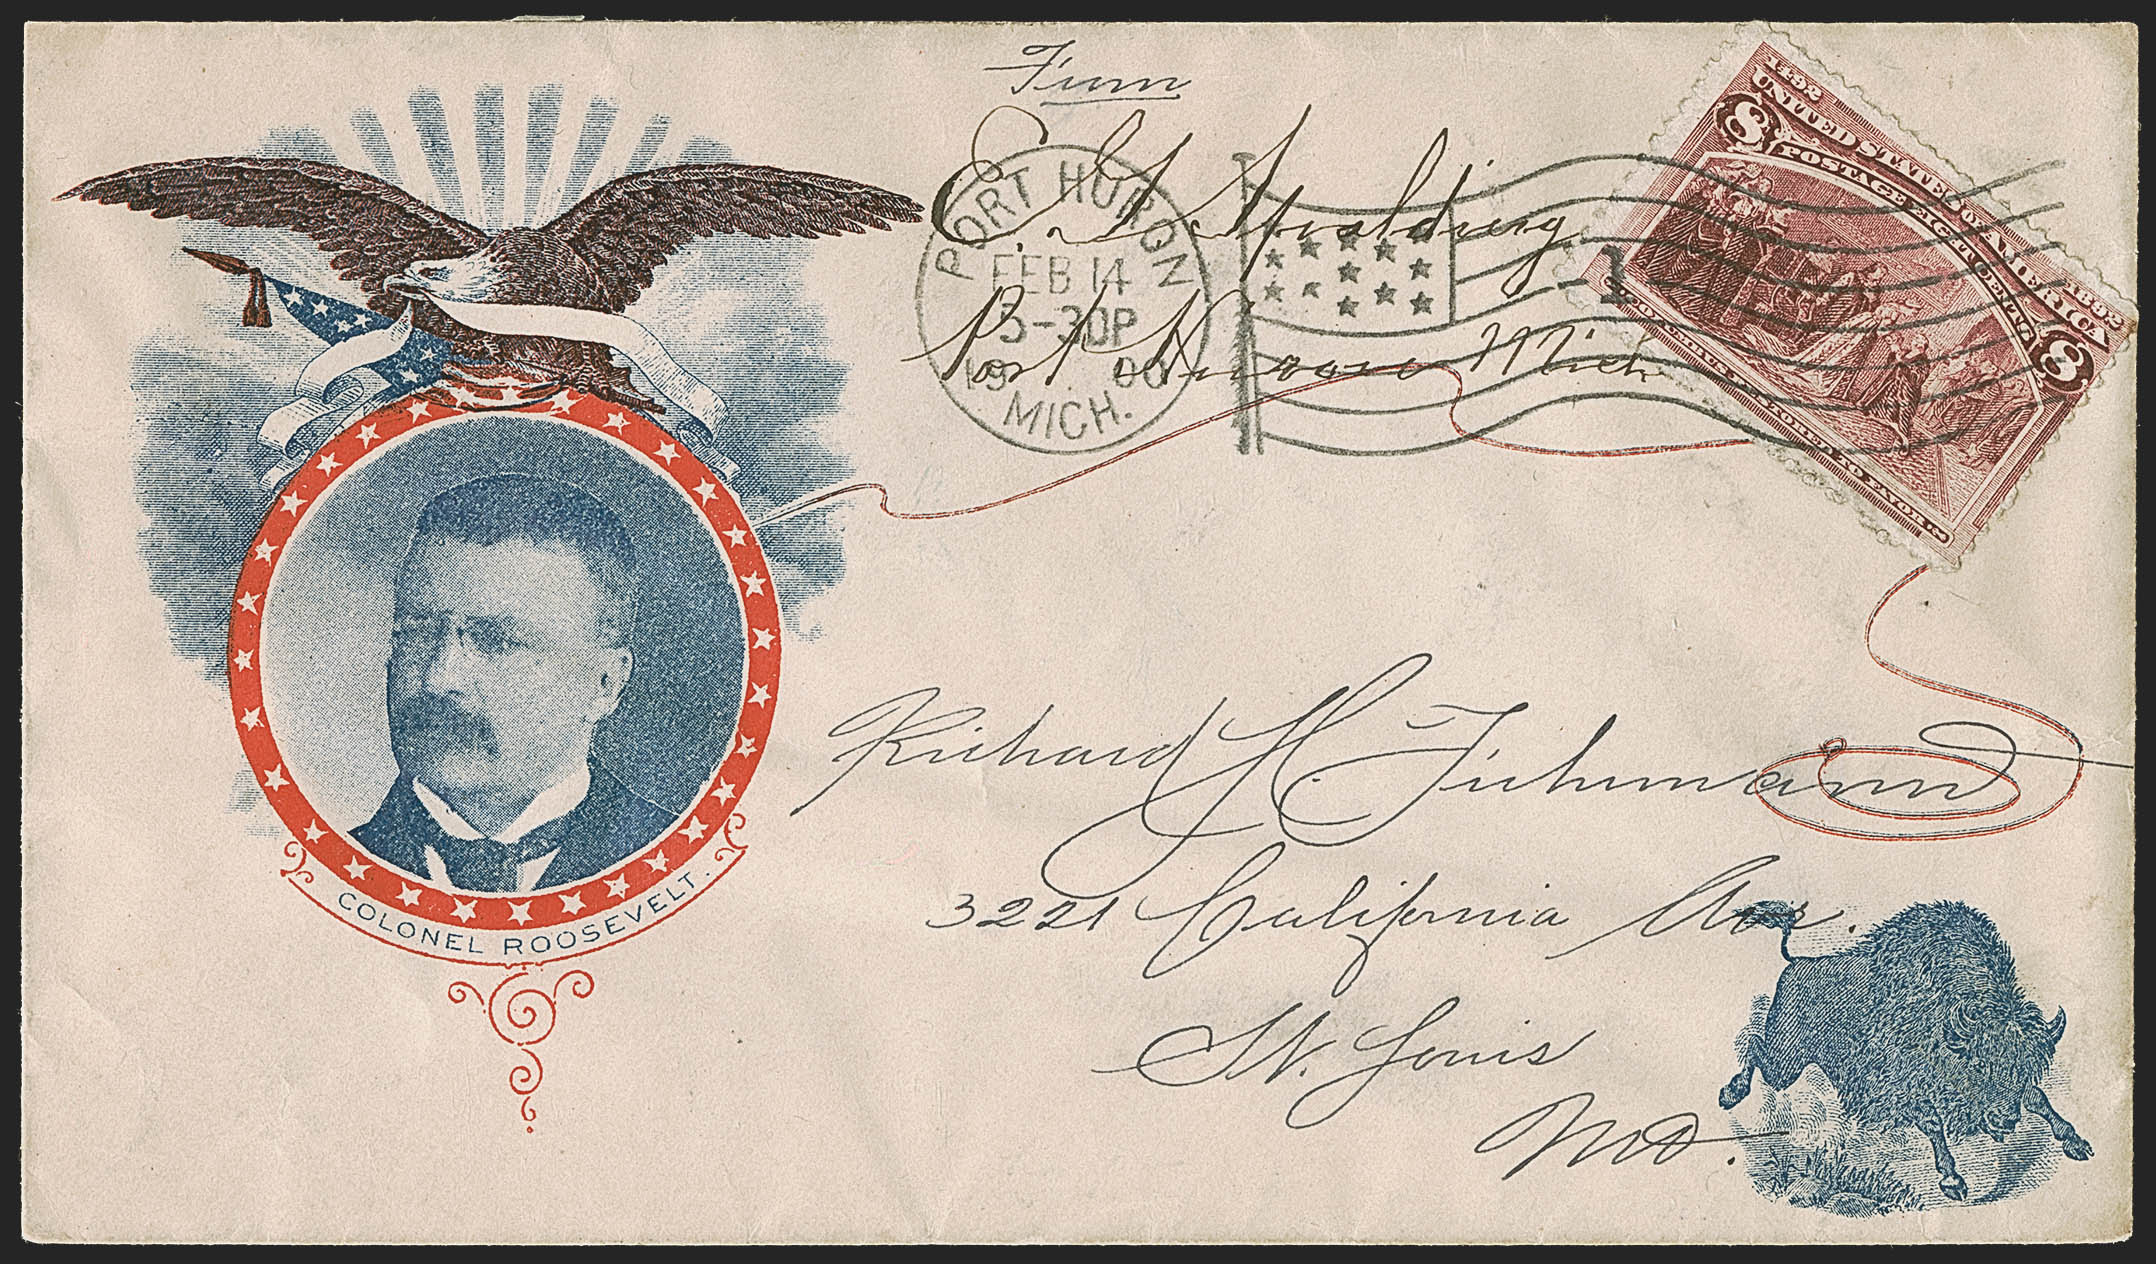 From
E. A. Spalding
Port Huron Mich
PORT HURON
FEB 14
5-30P
1900
MICH.
1
1492 1892
UNITED STATES OF AMERICA
POSTAGE EIGHT CENTS
8 8
COLUMBUS RESTORED TO FAVOR
COLONEL ROOSEVELT.
Richard H.
3221 California Ave.
St. Louis
Mo.